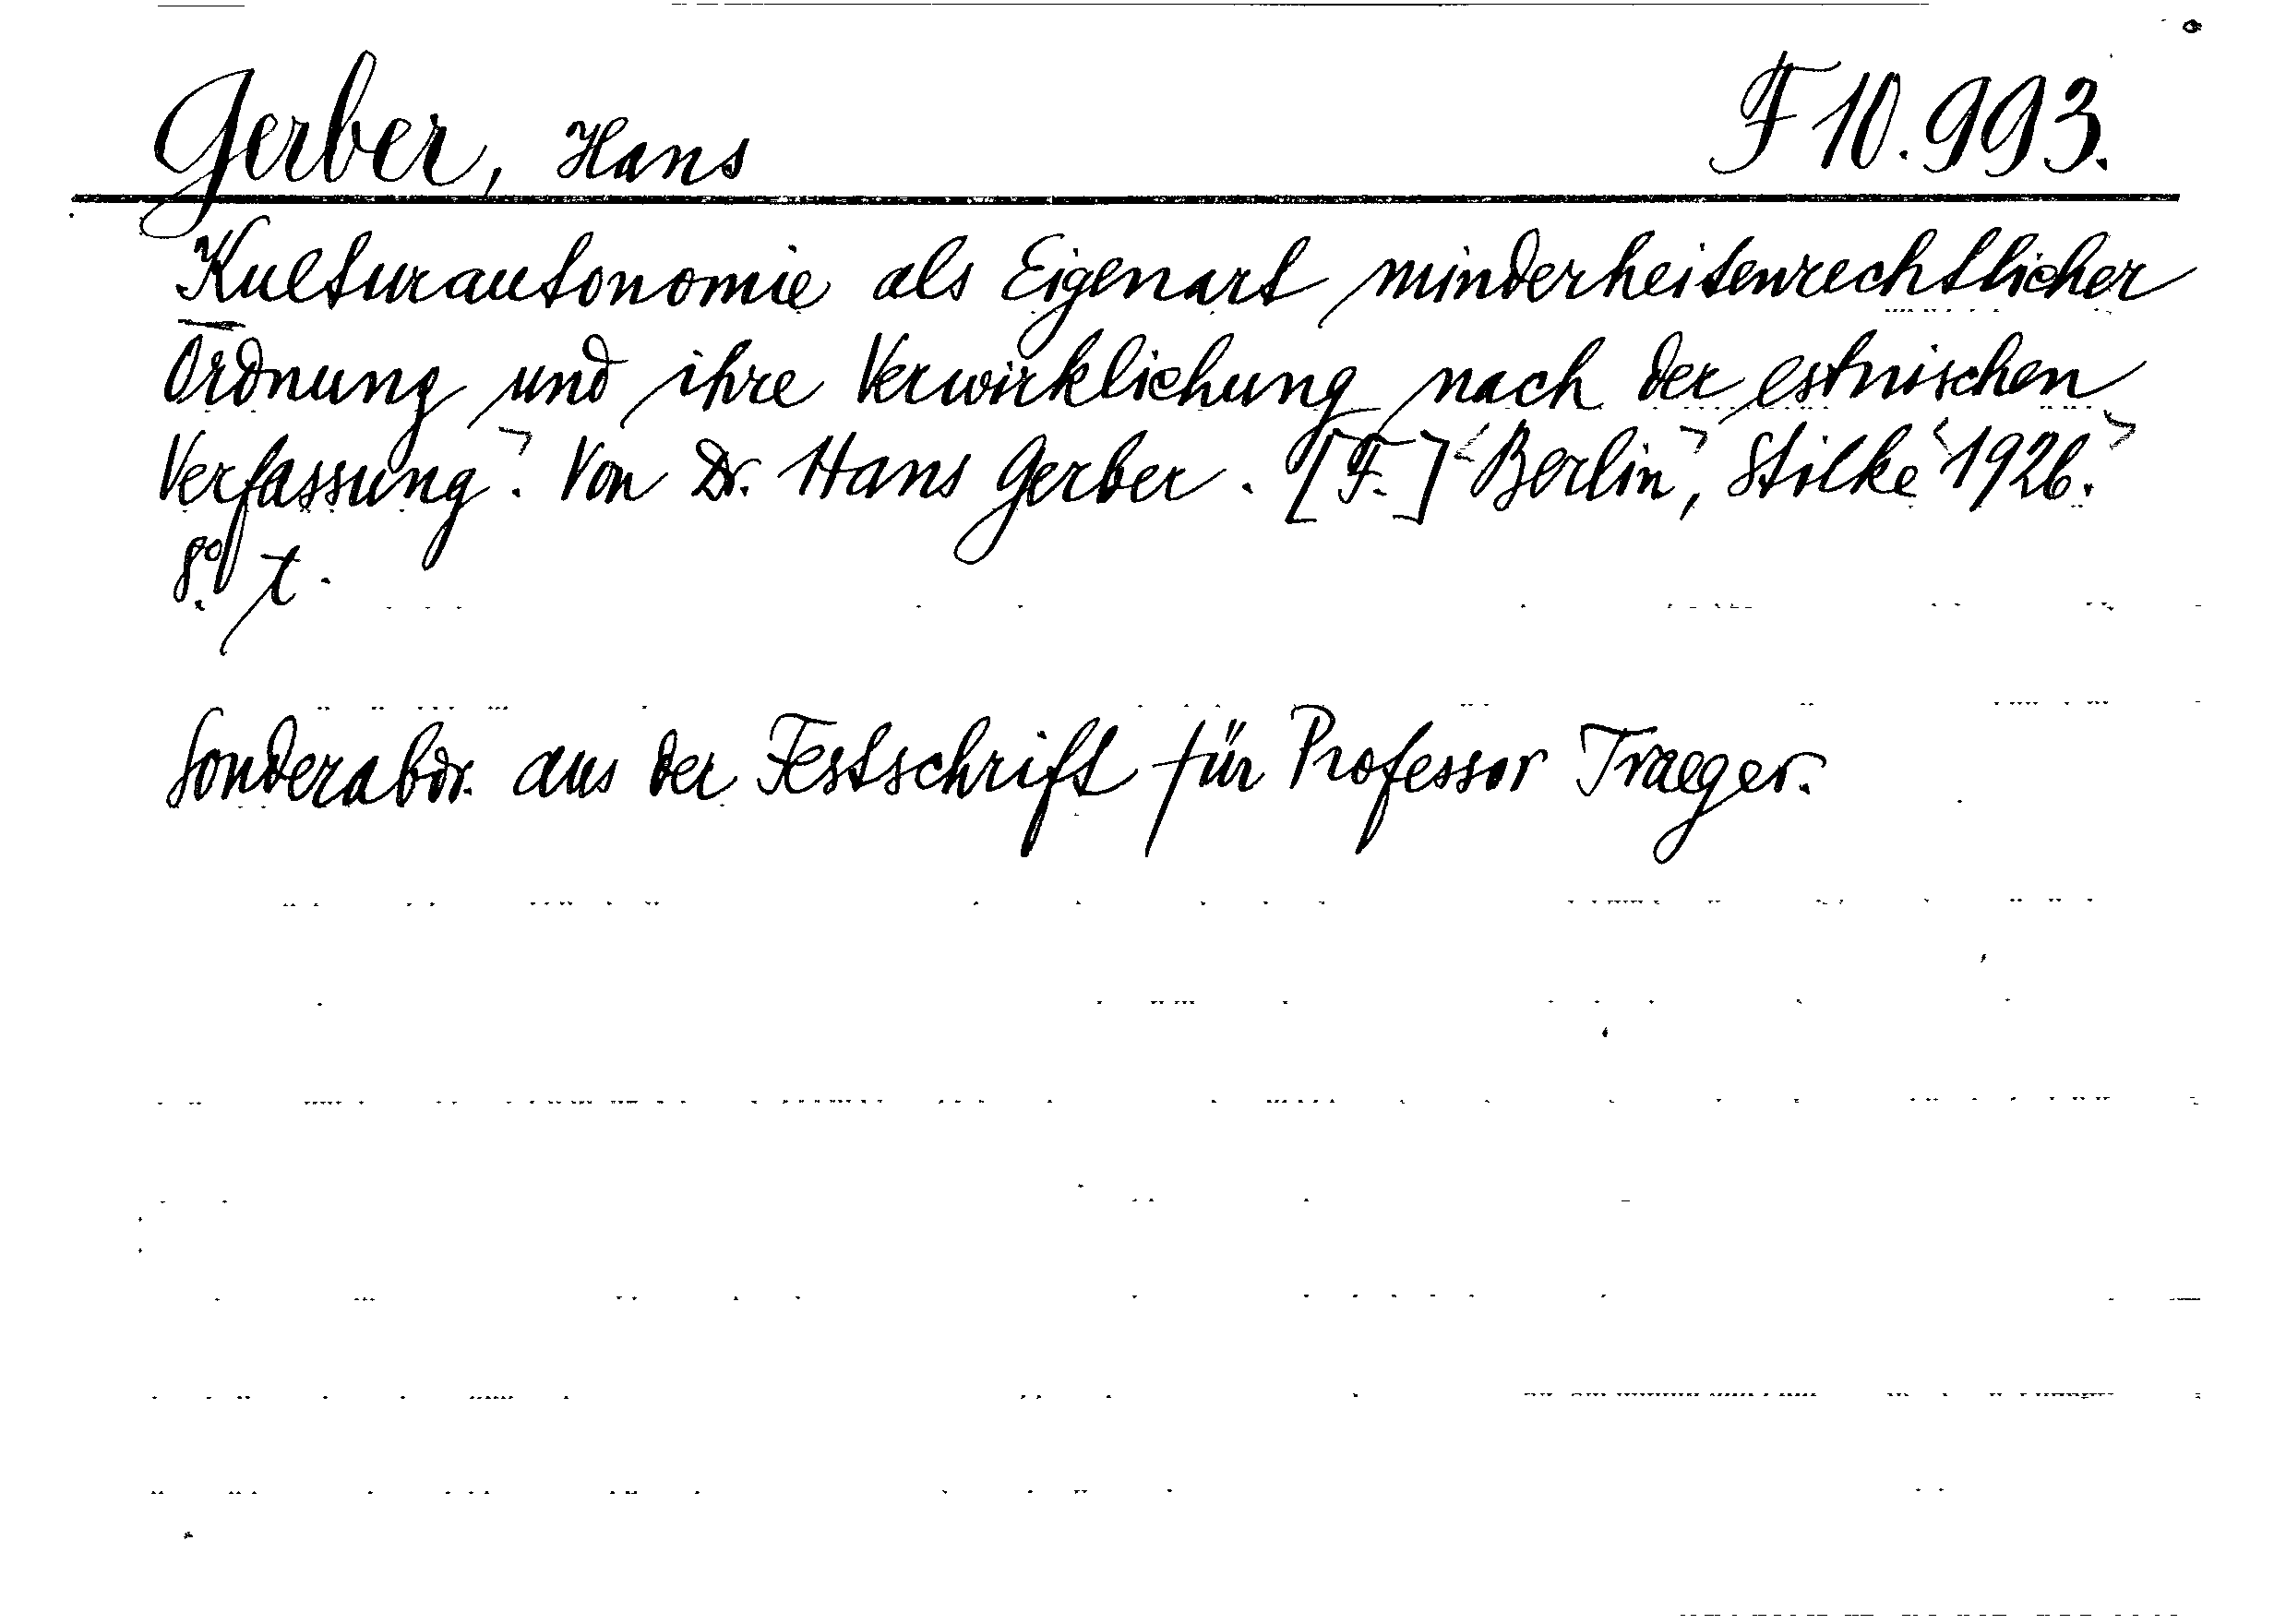 Gerber, Hans F 10.993.
Kulturautonomie als Eigenart minderheitenrechtlicher
Ordnung und ihre Verwirklichung nach der estnischen
Verfassung. Von Dr. Hans Gerber. [F.] Berlin, Stilke 1926.
8° t.
Sonderabdr. aus der Festschrift für Professor Traeger.